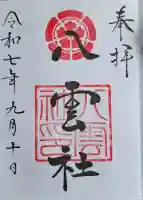 奉拝
八雲社
令和七年九月十日